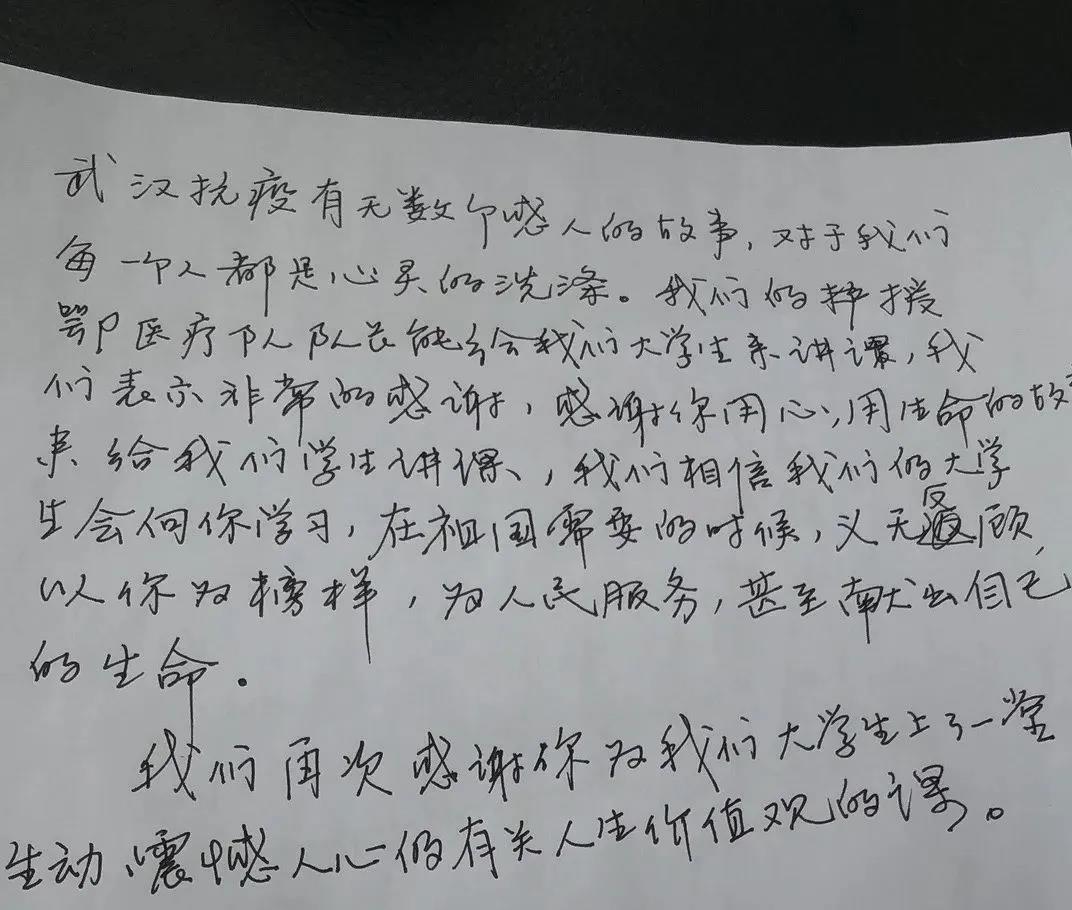 武汉抗疫有无数个感人的故事，对于我们
每一个人都是心灵的洗涤。我们的援
鄂医疗队队长能给我们大学生来讲课，我
们表示非常的感谢，感谢你用心，用生命的故
来给我们学生讲课，我们相信我们的大学
生会向你学习，在祖国需要的时候，义无反顾，
以你为榜样，为人民服务，甚至献出自己
的生命。
我们再次感谢你为我们大学生上了一堂
生动、震憾人心的有关人生价值观的课。